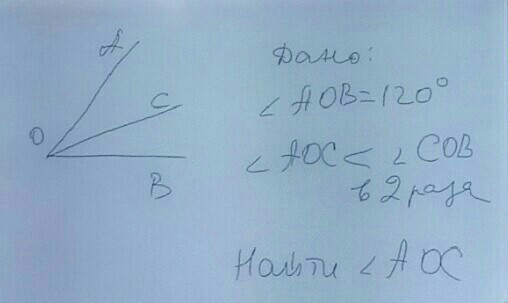 A
C
O
B
Дано:
∠AOB=120°
∠AOC < ∠COB
в 2 раза
Найти ∠AOC